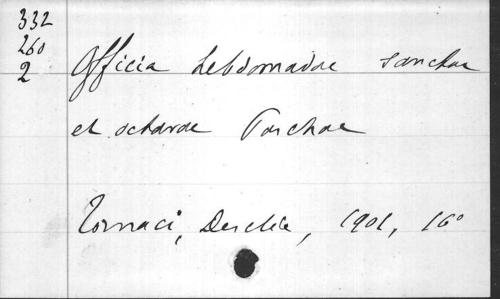 332
260
2
Officia hebdomadae sanctae
et octavae Paschae
Tornaci, Desclée, 1901, 16°